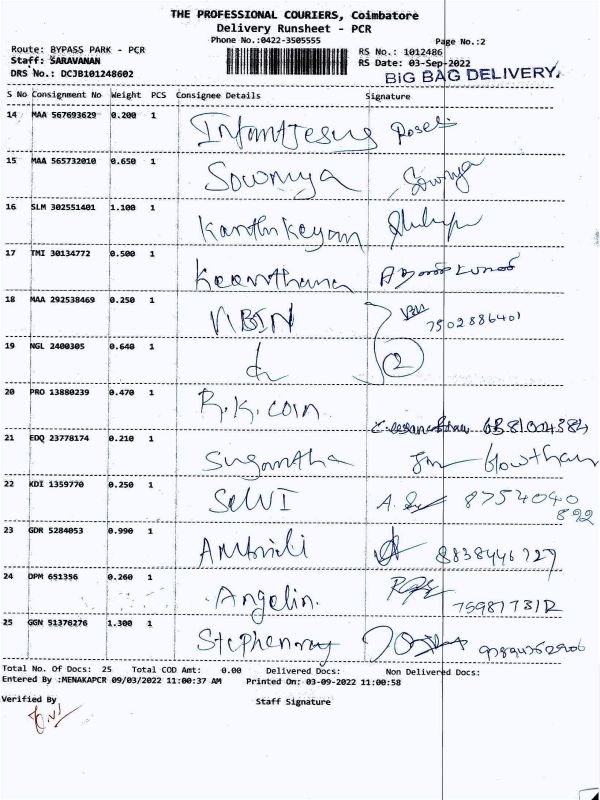 THE PROFESSIONAL COURIERS, Coimbatore
Delivery Runsheet - PCR
Phone No.:0422-3505555 Page No.:2
Route: BYPASS PARK - PCR RS No.: 1012486
Staff: SARAVANAN RS Date: 03-Sep-2022
DRS No.: DCJB101248602 BIG BAG DELIVERY.
S No Consignment No Weight PCS Consignee Details Signature
14 MAA 567693629 0.200 1 Infant Jesus
15 MAA 565732010 0.650 1 Sowmya Sowmya
16 SLM 302551401 1.100 1 Karthikeyan
17 TMI 30134772 0.500 1 Keerthana
18 MAA 292538469 0.250 1 VIBIN 7502886401
19 NGL 2400305 0.640 1 2
20 PRO 13880239 0.470 1 R.K. coin
21 EDQ 23778174 0.210 1 Sugantha Gowtham
22 KDI 1359770 0.250 1 SELVI 8754040
892
23 GDR 5284053 0.990 1 8838446727
24 DPM 651356 0.260 1 Angelin.
25 GGN 51376276 1.300 1
Total No. Of Docs: 25 Total COD Amt: 0.00 Delivered Docs: Non Delivered Docs:
Entered By :MENAKAPCR 09/03/2022 11:00:37 AM Printed On: 03-09-2022 11:00:58
Verified By Staff Signature